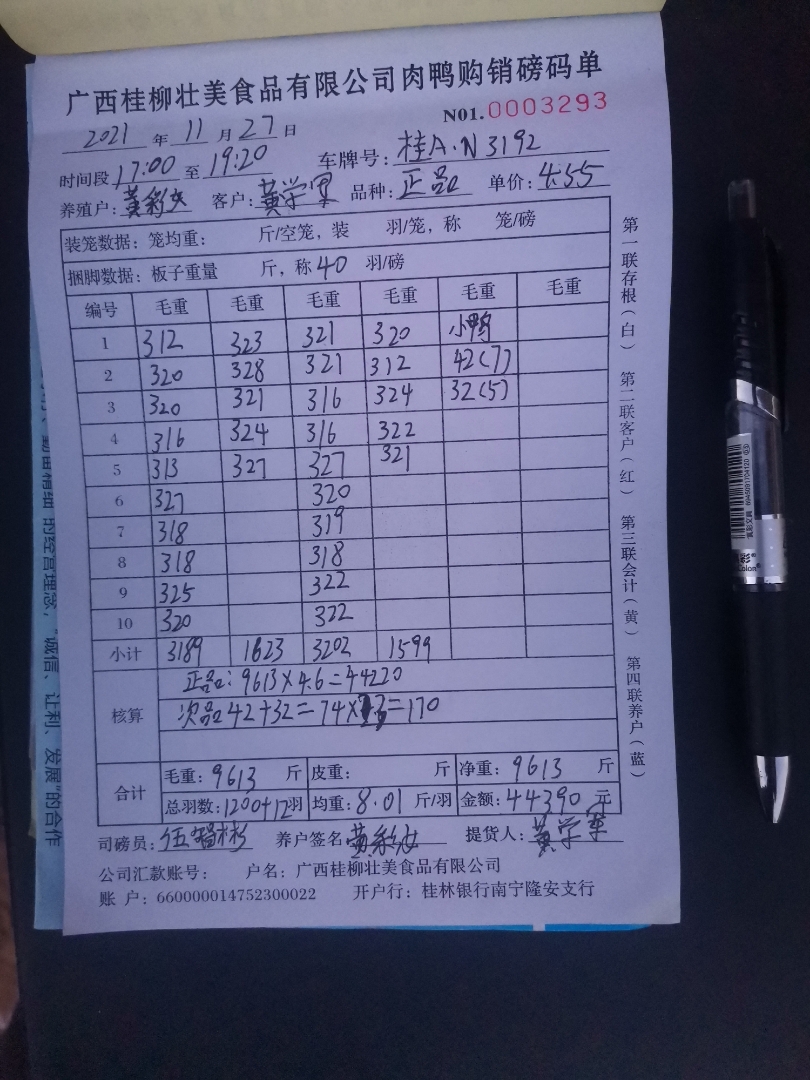 广西桂柳壮美食品有限公司肉鸭购销磅码单
N01.0003293
2021 年 11 月 27 日
时间段 17:00 至 19:20 车牌号: 桂A·N3192
养殖户: 黄彩 客户: 黄学军 品种: 正品 单价: 4.55
装笼数据: 笼均重: 斤/空笼, 装 羽/笼, 称 笼/磅
捆脚数据: 板子重量 斤, 称 40 羽/磅
编号 毛重 毛重 毛重 毛重 毛重 毛重
1 312 323 321 320 小鸭
2 320 328 321 312 42(7)
3 320 321 316 324 32(5)
4 316 324 316 322
5 313 327 327 321
6 327 320
7 318 319
8 318 318
9 325 322
10 320 322
小计 3189 1623 3202 1599
核算
正品: 9613×4.6=44220
次品 42+32=74× =170
合计
毛重: 9613 斤 皮重: 斤 净重: 9613 斤
总羽数: 1200+12羽 均重: 8.01 斤/羽 金额: 44390 元
司磅员: 养户签名 黄彩 提货人: 黄学军
公司汇款账号: 户名: 广西桂柳壮美食品有限公司
账 户: 660000014752300022 开户行: 桂林银行南宁隆安支行
第一联存根(白) 第二联客户(红) 第三联会计(黄) 第四联养户(蓝)
的经营理念、"诚信、让利、发展"的合作
6945091704120